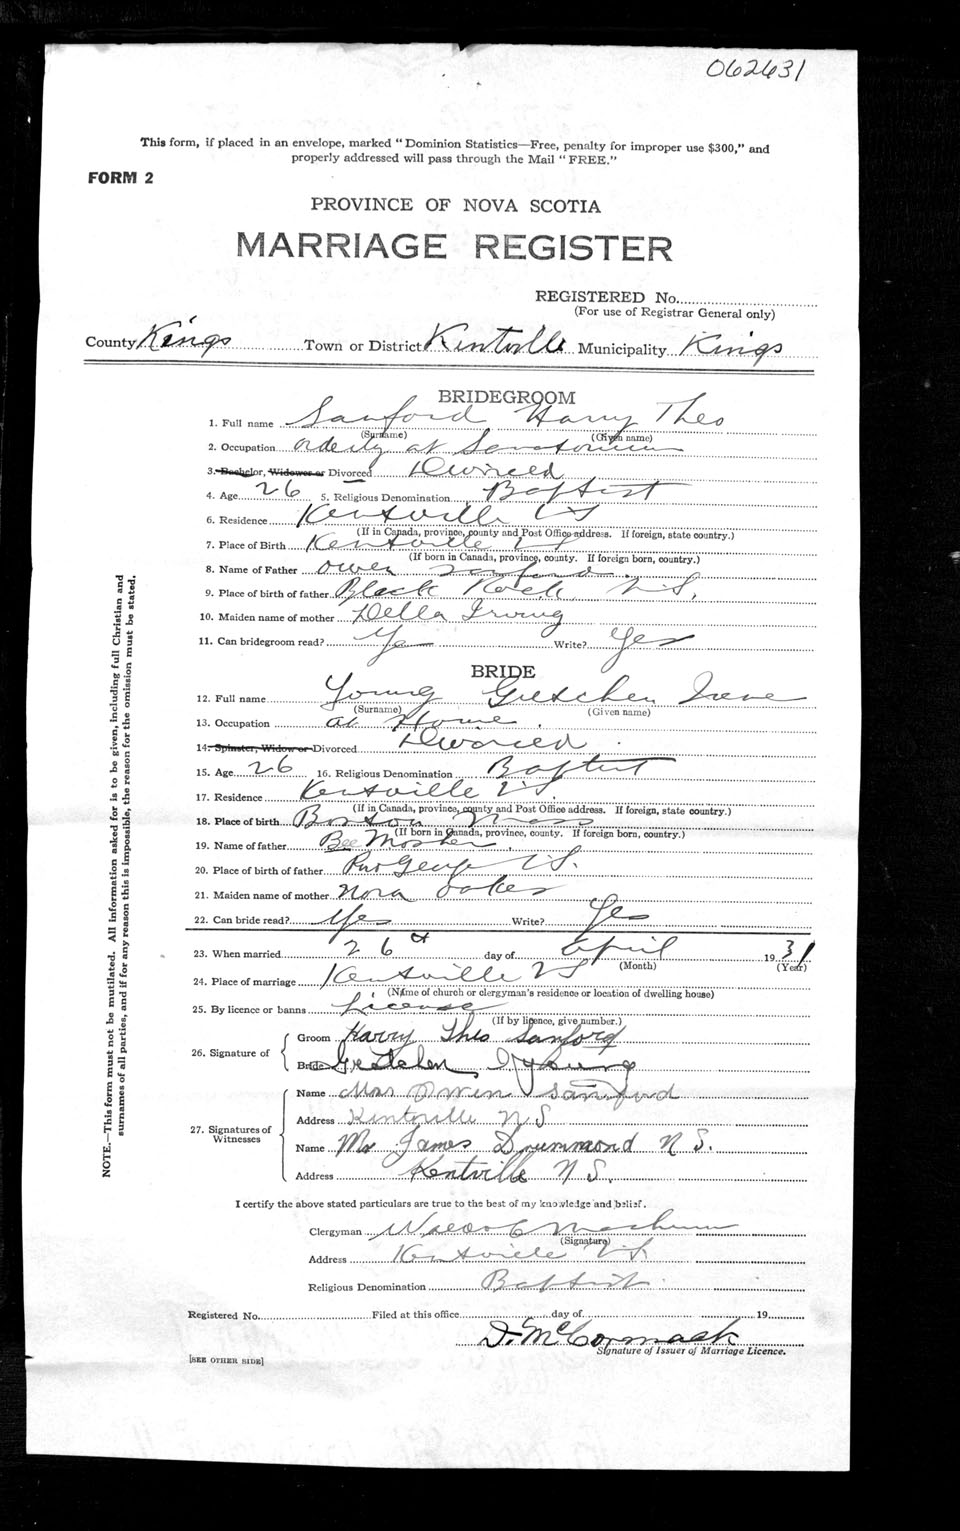 062631
This form, if placed in an envelope, marked "Dominion Statistics—Free, penalty for improper use $300," and
properly addressed will pass through the Mail "FREE."
FORM 2
PROVINCE OF NOVA SCOTIA
MARRIAGE REGISTER
REGISTERED No.
(For use of Registrar General only)
County Kings Town or District Kentville Municipality Kings
BRIDEGROOM
1. Full name Sanford Harry Theo
(Surname) (Given name)
2. Occupation orderly at Sanatorium
3. Bachelor, Widower or Divorced Divorced
4. Age 26 5. Religious Denomination Baptist
6. Residence Kentville NS
(If in Canada, province, county and Post Office address. If foreign, state country.)
7. Place of Birth Kentville NS
(If born in Canada, province, county. If foreign born, country.)
8. Name of Father Owen Sanford
9. Place of birth of father Black Rock N.S.
10. Maiden name of mother Della Irving
11. Can bridegroom read? Yes Write? Yes
BRIDE
12. Full name Young Gretchen Irene
(Surname) (Given name)
13. Occupation at Home.
14. Spinster, Widow or Divorced Divorced
15. Age 26 16. Religious Denomination Baptist
17. Residence Kentville NS.
(If in Canada, province, county and Post Office address. If foreign, state country.)
18. Place of birth Boston Mass
(If born in Canada, province, county. If foreign born, country.)
19. Name of father Bee Mosher
20. Place of birth of father NS.
21. Maiden name of mother Nora Oakes
22. Can bride read? Yes Write? Yes
23. When married 26th day of April 1931
(Month) (Year)
24. Place of marriage Kentville NS
(Name of church or clergyman's residence or location of dwelling house)
25. By licence or banns License
(If by licence, give number.)
26. Signature of
Groom Harry Theo Sanford
Bride Gretchen I Young
27. Signatures of Witnesses
Name Mrs Owen Sanford
Address Kentville N S
Name Mr James Drummond N S.
Address Kentville N S.
I certify the above stated particulars are true to the best of my knowledge and belief.
Clergyman
(Signature)
Address Kentville N.S.
Religious Denomination Baptist
Registered No. Filed at this office day of 19
D. McCormack
Signature of Issuer of Marriage Licence.
[SEE OTHER SIDE]
NOTE.—This form must not be mutilated. All information asked for is to be given, including full Christian and
surnames of all parties, and if for any reason this is impossible, the reason for the omission must be stated.